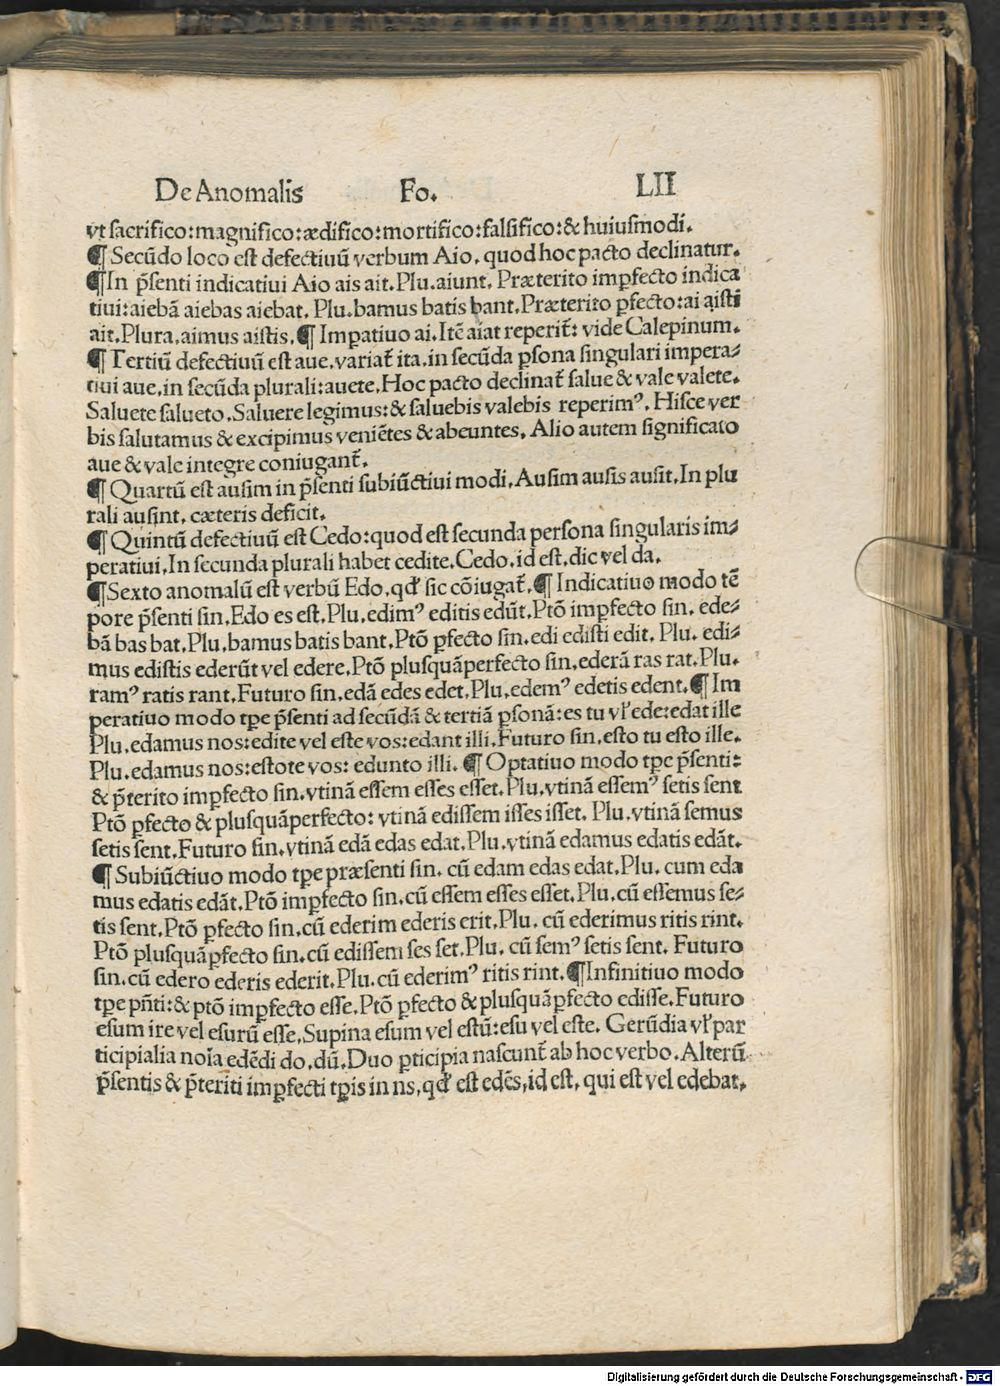 De Anomalis Fo. LII
vt ſacrifico:magnifico:ædifico:mortifico:falſifico:& huiuſmodi.
¶ Secūdo loco eſt defectiuū verbum Aio. quod hoc pacto declinatur.
¶In p̃ſenti indicatiui Aio ais ait. Plu. aiunt. Præterito imꝑfecto indica
tiui:aiebā aiebas aiebat. Plu. bamus batis bant. Præterito ꝑfecto:ai aiſti
ait. Plura. aimus aiſtis. ¶ Imꝑatiuo ai. Itē aiat reperit̃: vide Calepinum.
¶ Tertiū defectiuū eſt aue. variat̃ ita. in ſecūda ꝑſona ſingulari impera⸗
tiui aue. in ſecūda plurali:auete. Hoc pacto declinat̃ ſalue & vale valete.
Saluete ſalueto. Saluere legimus:& ſaluebis valebis reperimꝰ. Hiſce ver
bis ſalutamus & excipimus veniētes & abeuntes. Alio autem ſignificato
aue & vale integre coniugant̃.
¶ Quartū eſt auſim in p̃ſenti ſubiūctiui modi. Auſim auſis auſit. In plu
rali auſint. cæteris deficit.
¶ Quintū defectiuū eſt Cedo:quod eſt ſecunda perſona ſingularis im⸗
peratiui. In ſecunda plurali habet cedite. Cedo. id eſt. dic vel da.
¶Sexto anomalū eſt verbū Edo. qđ ſic cōiugat̃. ¶ Indicatiuo modo tē
pore p̃ſenti ſin. Edo es eſt. Plu. edimꝰ editis edūt. Ptō imꝑfecto ſin. ede⸗
bā bas bat. Plu. bamus batis bant. Ptō ꝑfecto ſin. edi ediſti edit. Plu. edi⸗
mus ediſtis ederūt vel edere. Ptō pluſquāperfecto ſin. ederā ras rat. Plu.
ramꝰ ratis rant. Futuro ſin. edā edes edet. Plu. edemꝰ edetis edent. ¶ Im
peratiuo modo tꝑe p̃ſenti ad ſecūdā & tertiā ꝑſonā: es tu vł ede:edat ille
Plu. edamus nos:edite vel eſte vos:edant illi. Futuro ſin. eſto tu eſto ille.
Plu. edamus nos:eſtote vos: edunto illi. ¶ Optatiuo modo tꝑe p̃ſenti:
& p̃terito imꝑfecto ſin. vtinā eſſem eſſes eſſet. Plu. vtinā eſſemꝰ ſetis ſent
Ptō ꝑfecto & pluſquāperfecto: vtinā ediſſem iſſes iſſet. Plu. vtinā ſemus
ſetis ſent. Futuro ſin. vtinā edā edas edat. Plu. vtinā edamus edatis edāt.
¶ Subiūctiuo modo tꝑe præſenti ſin. cū edam edas edat. Plu. cum eda
mus edatis edāt. Ptō imꝑfecto ſin. cū eſſem eſſes eſſet. Plu. cū eſſemus ſe⸗
tis ſent. Ptō ꝑfecto ſin. cū ederim ederis erit. Plu. cū ederimus ritis rint.
Ptō pluſquāꝑfecto ſin. cū ediſſem ſes ſet. Plu. cū ſemꝰ ſetis ſent. Futuro
ſin. cū edero ederis ederit. Plu. cū ederimꝰ ritis rint. ¶Infinitiuo modo
tꝑe pñti:& ptō imꝑfecto eſſe. Ptō ꝑfecto & pluſquāꝑfecto ediſſe. Futuro
eſum ire vel eſurū eſſe. Supina eſum vel eſtū:eſu vel eſte. Gerūdia vł par
ticipialia noīa edēdi do. dū. Duo ꝑticipia naſcunt̃ ab hoc verbo. Alterū
p̃ſentis & p̃teriti imꝑfecti tꝑis in ns. qđ eſt edēs. id eſt. qui eſt vel edebat.
Digitalisierung gefördert durch die Deutsche Forschungsgemeinschaft - DFG